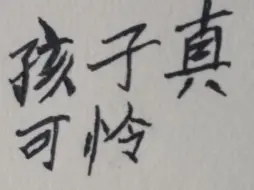 孩子真
可怜